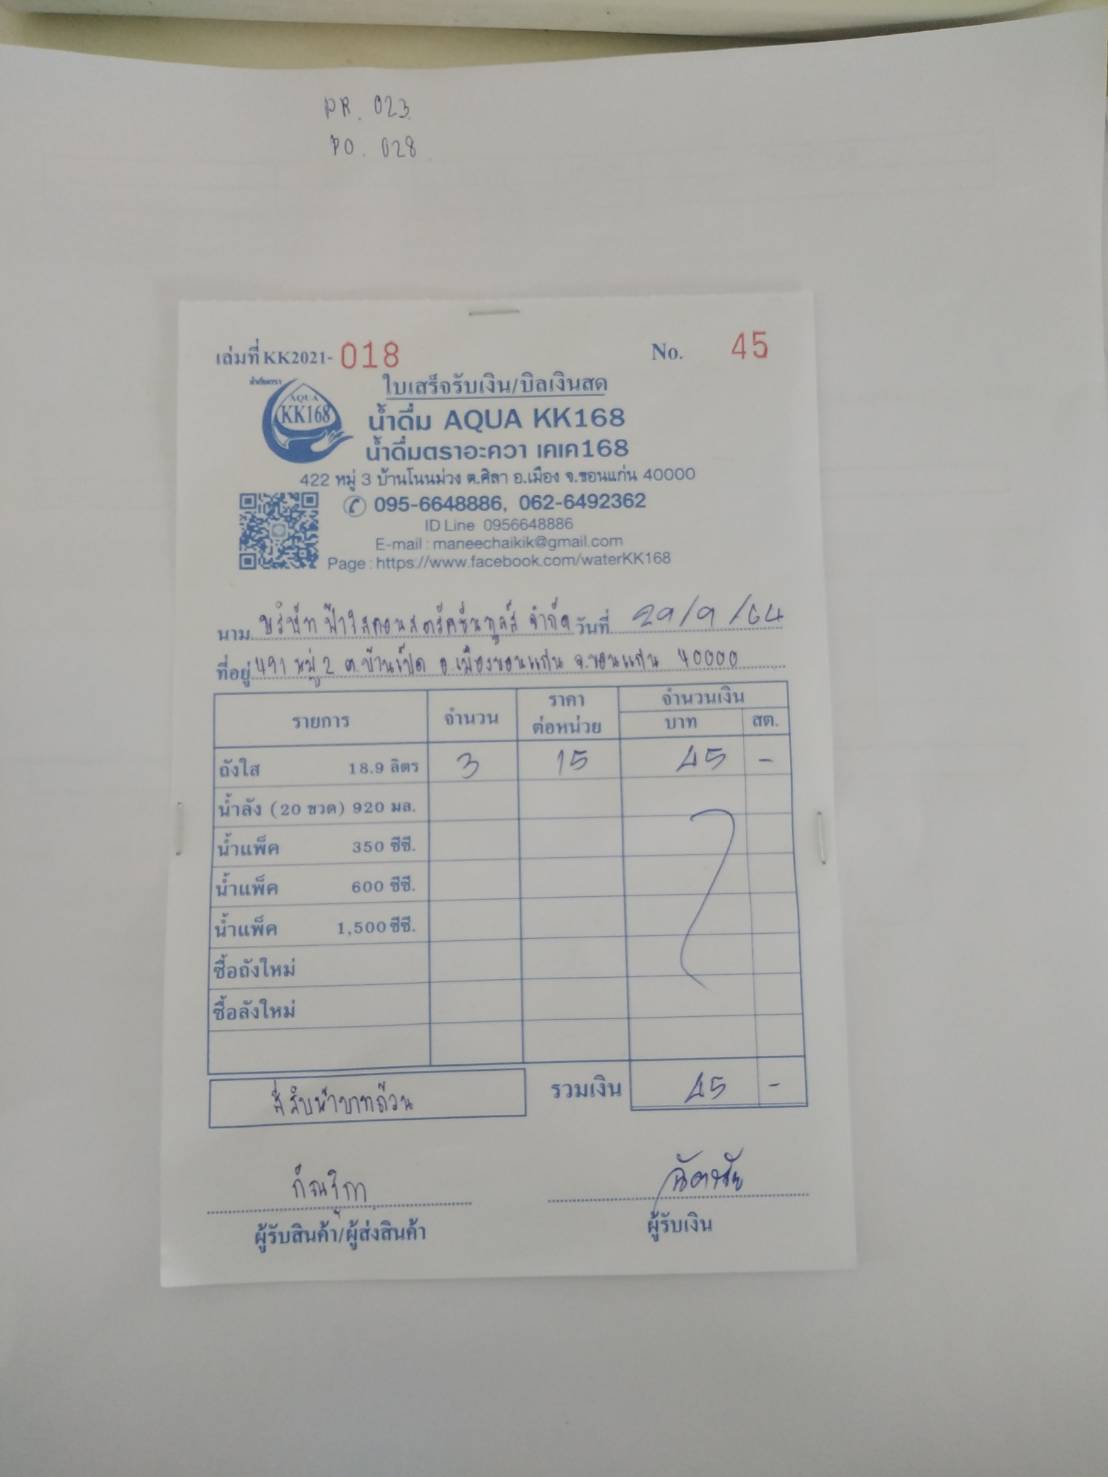 PR. 023
PO. 028
เล่มที่ KK2021- 018 No. 45
ใบเสร็จรับเงิน/บิลเงินสด
น้ำดื่มตรา
AQUA
KK168
น้ำดื่ม AQUA KK168
น้ำดื่มตราอะควา เคเค168
422 หมู่ 3 บ้านโนนม่วง ต.ศิลา อ.เมือง จ.ขอนแก่น 40000
095-6648886, 062-6492362
ID Line 0956648886
E-mail : maneechaikik@gmail.com
Page : https://www.facebook.com/waterKK168
นาม บริษัท ฟ้าใสคอนสตรัคชั่นทูลส์ จำกัด วันที่ 29/9/64
ที่อยู่ 491 หมู่ 2 ต.บ้านเป็ด อ.เมืองขอนแก่น จ.ขอนแก่น 40000
รายการ จำนวน ราคาต่อหน่วย จำนวนเงิน
บาท สต.
ถังใส 18.9 ลิตร 3 15 45 -
น้ำลัง (20 ขวด) 920 มล.
น้ำแพ็ค 350 ซีซี.
น้ำแพ็ค 600 ซีซี.
น้ำแพ็ค 1,500 ซีซี.
ซื้อถังใหม่
ซื้อลังใหม่
สี่สิบห้าบาทถ้วน รวมเงิน 45 -
ผู้รับสินค้า/ผู้ส่งสินค้า ผู้รับเงิน